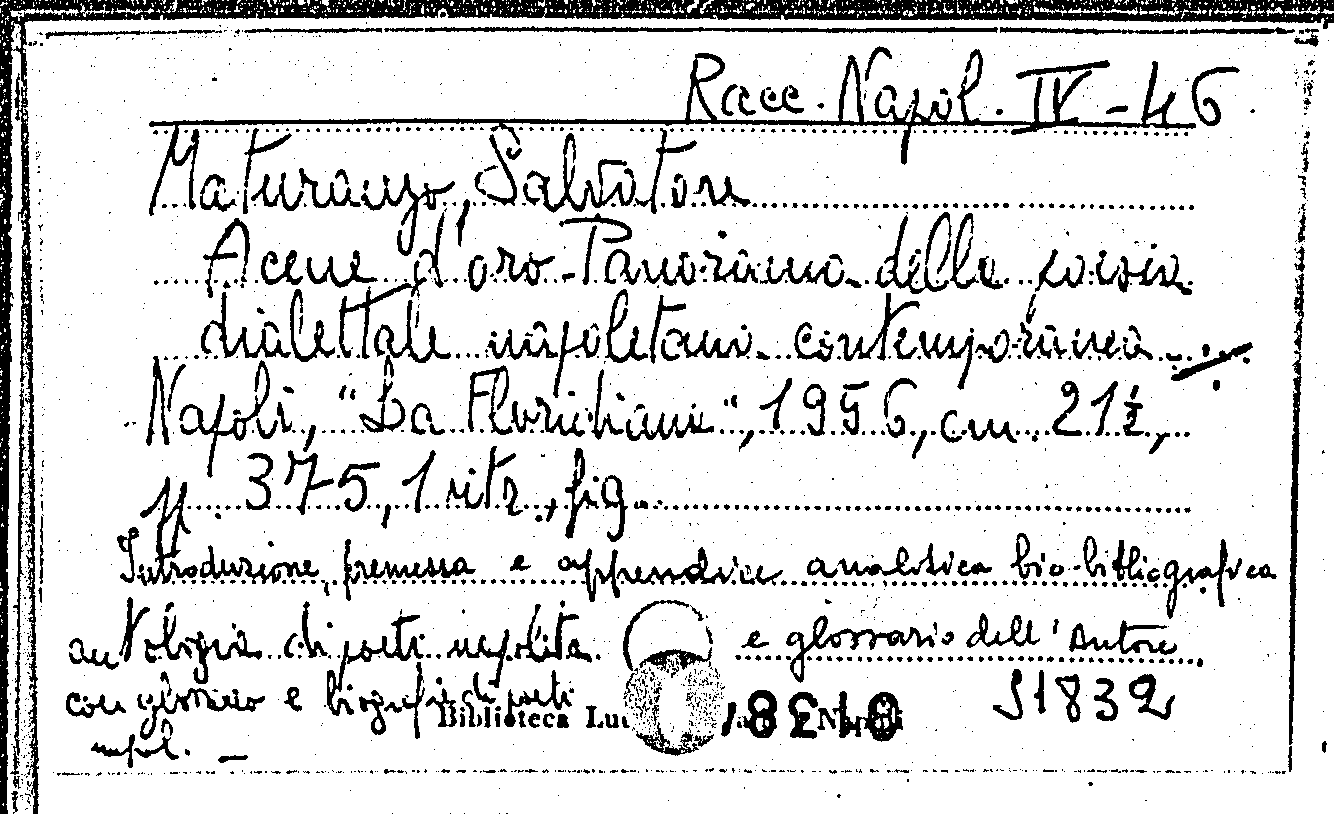 Racc. Napol. IV - 46
Maturanzo, Salvatore
Acene d'oro - Panorama della poesia
dialettale napoletana contemporanea
Napoli, "La Floridiana", 1956, cm. 21½,
pp. 375, 1 ritr., fig.
Introduzione, premessa e appendice analitica bio-bibliografica
antologia di poeti napolita e glossario dell'Autore
con glossario e biografia di poeti
napol. —
S1832
Biblioteca Luc Napoli